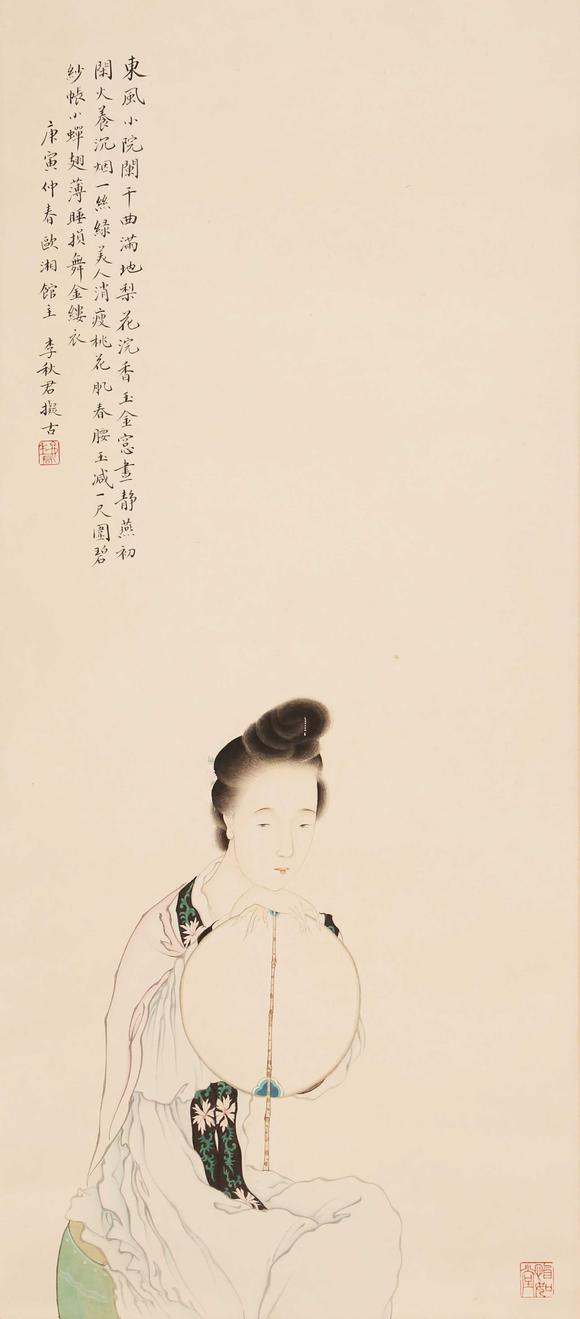 東風小院闌干曲滿地梨花浣香玉金窻晝靜燕初
閑火養沉烟一絲綠美人消瘦桃花肌春腰玉減一尺圍碧
紗帳小蟬翅薄睡損舞金縷衣
庚寅仲春歐湘館主 李秋君擬古